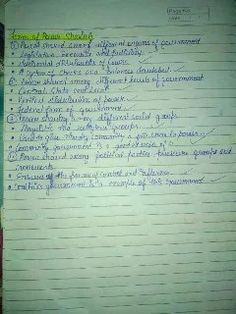 Page No.
Date
Forms of Power Sharing
① Power shared among different organs of government
• Legislature, executive and judiciary
• Horizontal distribution of power.
• A system of checks and balances
② Power shared among different levels of government
• Central, State and Local
• Vertical distribution of power.
• Federal form of government.
③ Power sharing among different social groups
• Linguistic and religious groups.
• community a fair share in power.
• Community government is a good example of it.
④ Power shared among political parties, pressure groups and
movements.
• government is a example of this government